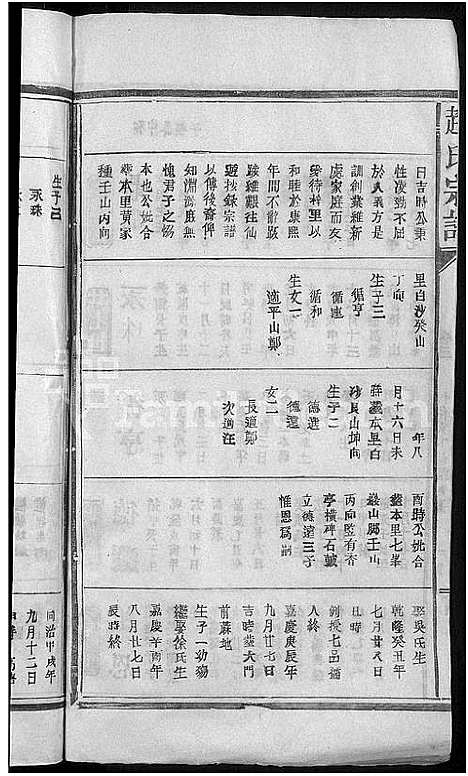 趙氏宗譜
日吉時公秉
性凌勁不屈
於人義方是
訓創業維新
處家庭而友
愛待村里以
和睦於康熙
年間不辭跋
跋艱觀往仙
遊抜錄宗譜
以傳後裔俾
知淵源庶無
愧君子之務
本也公妣合
塟本里黄家
種壬山丙向
里白沙癸山
丁向
生子三
循亨
循進
循和
生女一
適平山鄭
年八
月十六日未
時塟本里白
沙艮山坤向
生子二
德選
德遠
女二
長適鄭
次適汪
酉時公妣合
塟本里七峯
嚴山陽壬山
丙向監有杏
亭橫碑石皷
立德遠三子
惟恩為嗣
娶吳氏生
乾隆癸丑年
七月廿八日
丑時
例授七品頂
人終
嘉慶庚辰年
九月廿七日
吉時塟大門
前蔴地
生子一幼殤
繼娶徐氏生
嘉慶辛酉年
八月廿七日
辰時終
生子三
同治甲戌年
九月十二日